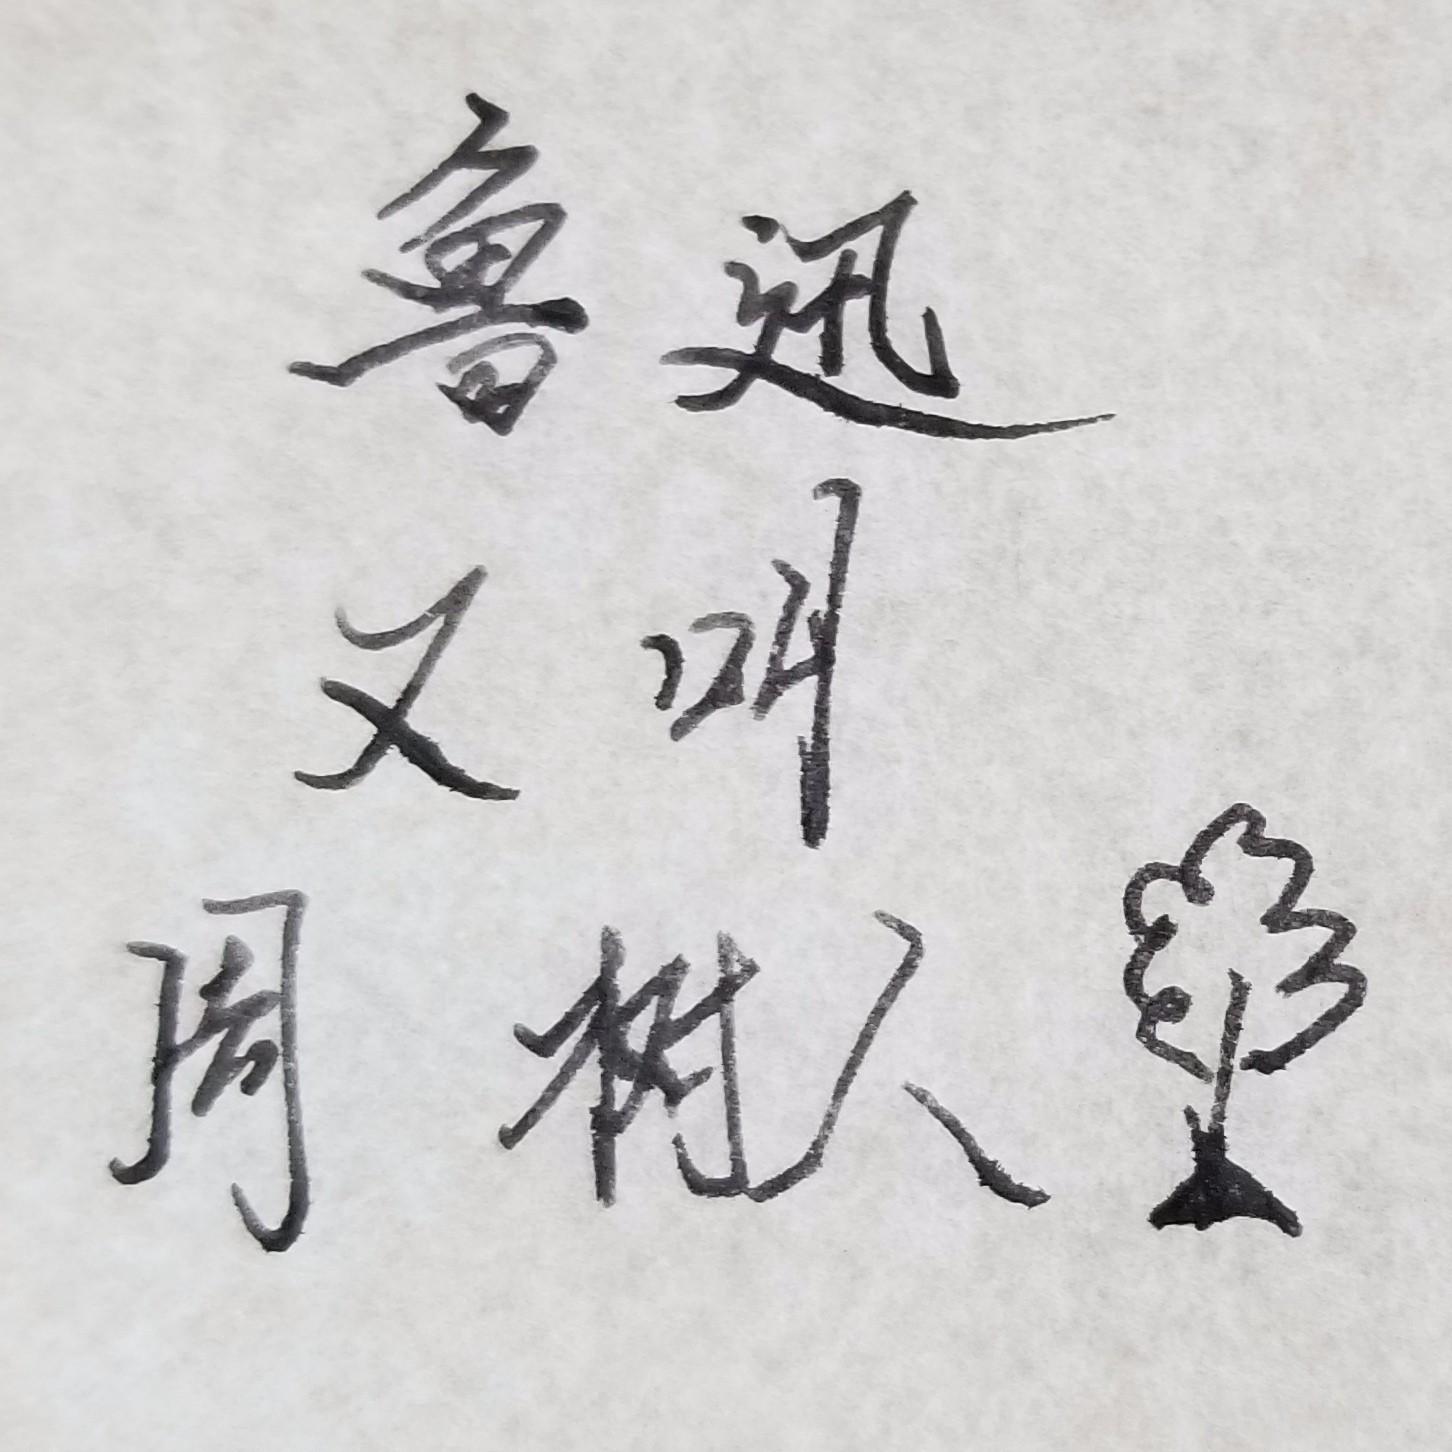 鲁迅
又叫
周树人